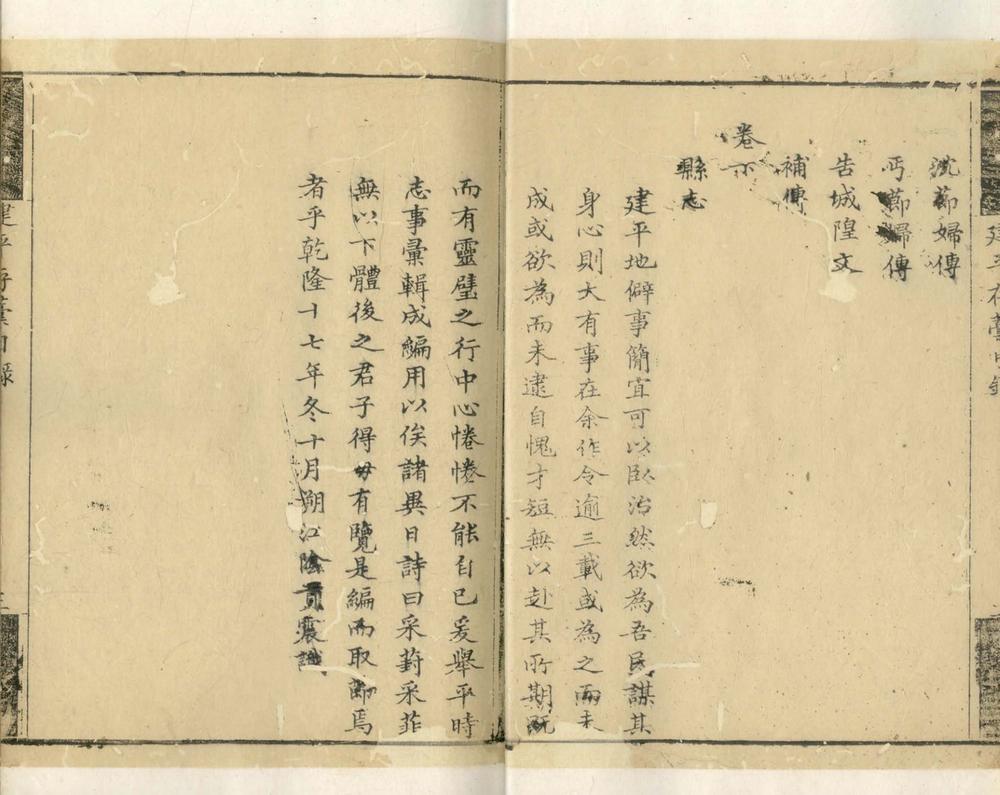 沈節婦傳
丐節婦傳
告城隍文
補傳
卷下
縣志
建平地僻事簡宜可以臥治然欲為吾民謀其
身心則大有事在余作令逾三載或為之而未
成或欲為而未逮自愧才短無以赴其所期既
而有靈璧之行中心惓惓不能自已爰舉平時
志事彙輯成編用以俟諸異日詩曰采葑采菲
無以下體後之君子得毋有覽是編而取節焉
者乎乾隆十七年冬十月朔江陰貢震識
建平存藁目錄